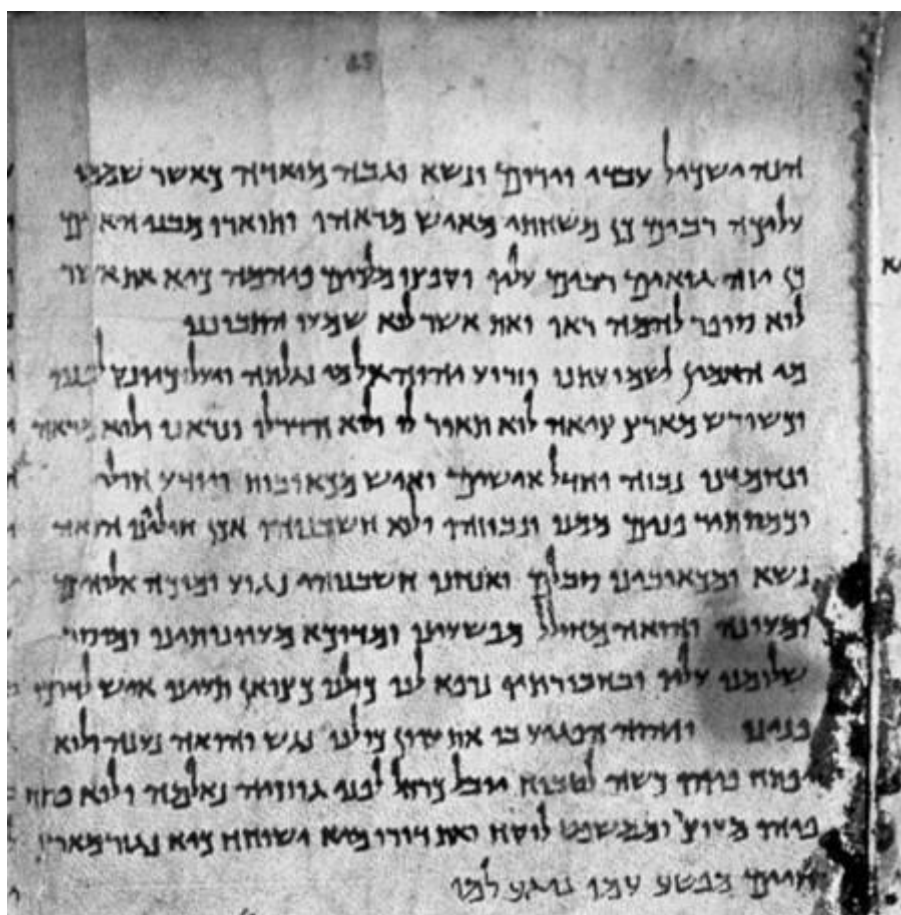 הנה ישכיל עבדי וירום ונשא וגבה מואדה כאשר שממו
עליכה רבים כן משחתי מאיש מראהו ותוארו מבני האדם
כן יזה גואים רבים עליו וקפצו מלכים פיהמה כיא את אשר
לוא סופר להמה ראו ואת אשר לוא שמעו התבוננו
מי האמין לשמועתנו וזרוע יהוה אל מי נגלתה ויעל כיונק לפניו
וכשורש מארץ ציאה לוא תאור לו ולוא הדר לו ונראנו ולוא מראה
ונחמדנו נבזה וחדל אישים ואיש מכאובות וידוע חולי
וכמסתיר פנים ממנו ונבוזהו ולוא חשבנוהו אכן חוליינו הואה
נשא ומכאובינו סבלם ואנחנו חשבנוהו נגוע ומוכה אלוהים
ומעונה והואה מחולל מפשעינו ומדוכא מעוונותינו ומוסר
שלומנו עליו ובחבורתיו נרפא לנו כולנו כצואן תעינו איש לדרכו
פנינו ויהוה הפגיע בו את עוון כולנו נגש והואה נענה ולוא
יפתח פיהו כשה לטבוח יובל כרחל לפני גוזזיה נאלמה ולוא פתח
פיהו מעוצר וממשפט לוקח ואת דורו מיא ישוחח כיא נגזר מארץ
חיים מפשע עמו נוגע למו